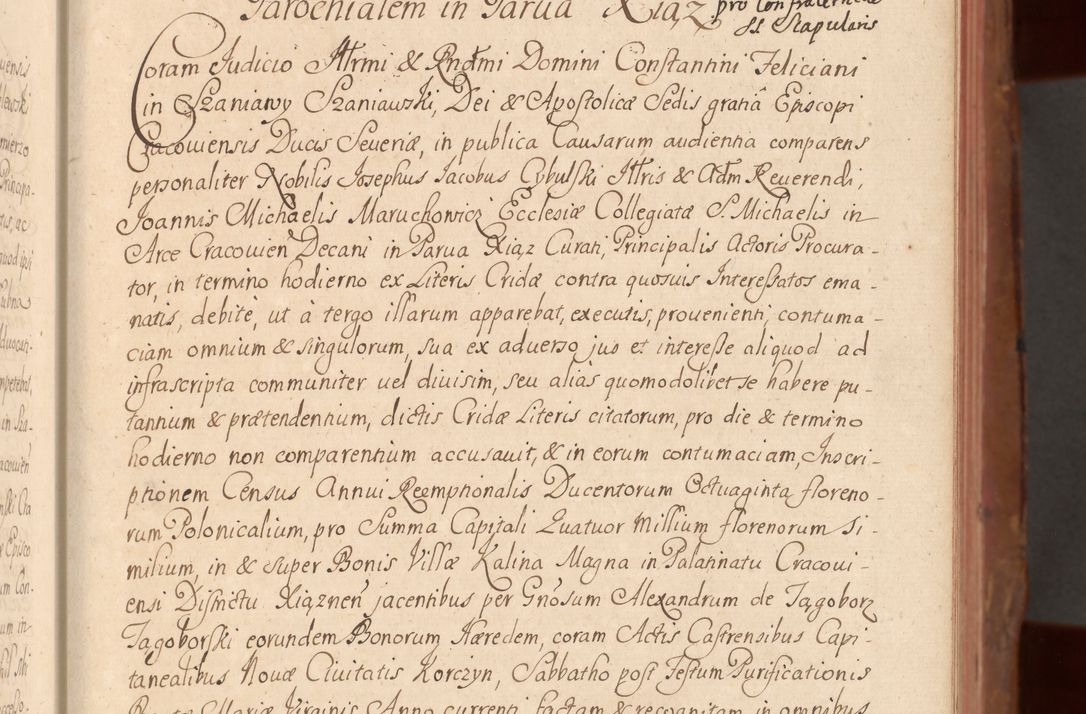 Parochialem in Parua Xiąz pro Confraternitate
SS. Scapularis
Coram Judicio Illrmi & Rndmi Domini Constantini Feliciani
in Szaniawy Szaniawski, Dei & Apostolicæ Sedis gratiâ Episcopi
Cracouiensis Ducis Seueriæ, in publica Causarum audientia comparens
personaliter Nobilis Josephus Jacobus Cybulski Illris & Adm Reuerendi,
Joannis Michaelis Maruchowicz Ecclesiæ Collegiatæ S. Michaelis in
Arce Cracouien Decani in Parua Xiąz Curati, Principalis Actoris Procura-
tor, in termino hodierno ex Literis Cridæ contra quosuis Interessatos ema-
natis, debitè, ut à tergo illarum apparebat, executis, prouenienti, contuma-
ciam omnium & singulorum, sua ex aduerso jus et interesse aliquod ad
infrascripta communiter uel diuisim, seu alias quomodolibet se habere pu-
tantium & prætendentium, dictis Cridæ Literis citatorum, pro die & termino
hodierno non comparentium accusauit, & in eorum contumaciam, Inscri-
ptionem Census Annui Reemptionalis Ducentorum Octuaginta floreno-
rum Polonicalium, pro Summa Capitali Quatuor Millium florenorum si-
milium, in & super Bonis Villæ Kalina Magna in Palatinatu Cracoui-
ensi Districtu Xiąznen jacentibus per Gnosum Alexandrum de Tagoborz
Tagoborski eorundem Bonorum Hæredem, coram Actis Castrensibus Capi-
tanealibus Nouæ Ciuitatis Korczyn, Sabbatho post Festum Purificationis
Beatæ Mariæ Virginis Anno currenti factam & recognitam in omnibus